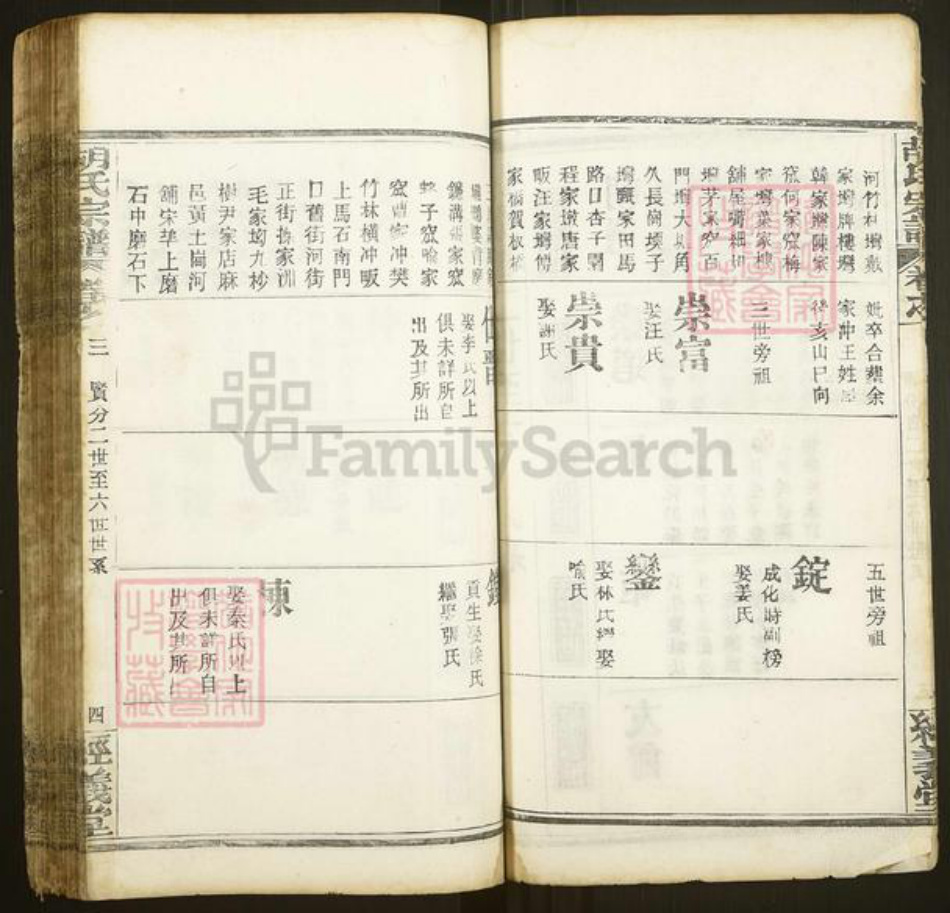 胡氏宗譜
經義堂
河竹林塆戴
家塆牌樓塆
韓家塆陳家
窊何家窊梅
家塆葉家樓
舖屋嘴細切
塆茅家窊百
門塆大坳角
久長崗墩子
塆甎家田馬
路口杏子園
程家墩唐家
畈汪家塆傅
家橋賀椒
妣卒合塟余
家冲王姓屋
後亥山巳向
三世旁祖
崇富
娶汪氏
崇貴
娶謝氏
五世旁祖
錠
成化時副榜
娶姜氏
鑾
娶林氏繼娶
喻氏
鏈溝 家窊
子窊喻家
窊 家冲樊
竹林橫冲畈
上馬石南門
口舊街河街
正街 家洲
毛家坳九杪
樹尹家店麻
邑黃土崗河
舖宋埠上磨
石中磨石下
娶李氏以上
俱未詳所自
出及其所出
貢生娶徐氏
繼娶張氏
娶秦氏以上
俱未詳所自
出及其所出
胡氏宗譜
三 賢分二世至六世世系
四
經義堂
FamilySearch